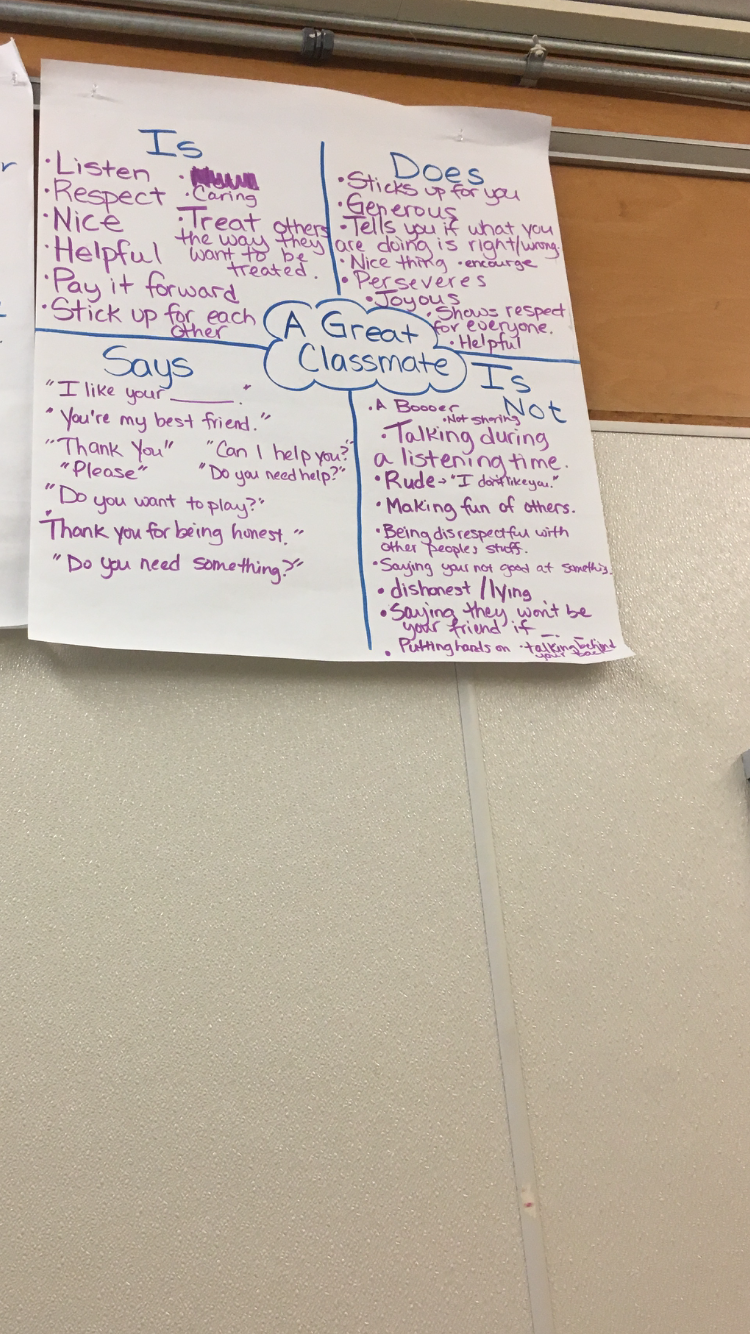 Is
· Listen
· Respect
· Nice
· Helpful
· Pay it forward
· Stick up for each
other
·
· Caring
· Treat others
the way they
want to be
treated.
Does
· Sticks up for you
· Generous
· Tells you if what you
are doing is right/wrong.
· Nice thing · encourge
· Perseveres
· Joyous
· Shows respect
for everyone.
· Helpful
A Great
Classmate
Says
"I like your ______."
"You're my best friend."
"Thank You" "Can I help you?"
"Please" "Do you need help?"
"Do you want to play?"
Thank you for being honest."
"Do you need something?"
Is
Not
· A Booer
· Not sharing
· Talking during
a listening time.
· Rude → "I don't like you."
· Making fun of others.
· Being disrespectful with
other peoples stuff.
· Saying your not good at
· dishonest / lying
· Saying they won't be
your friend if __.
· Putting hands on · talking behind
your back